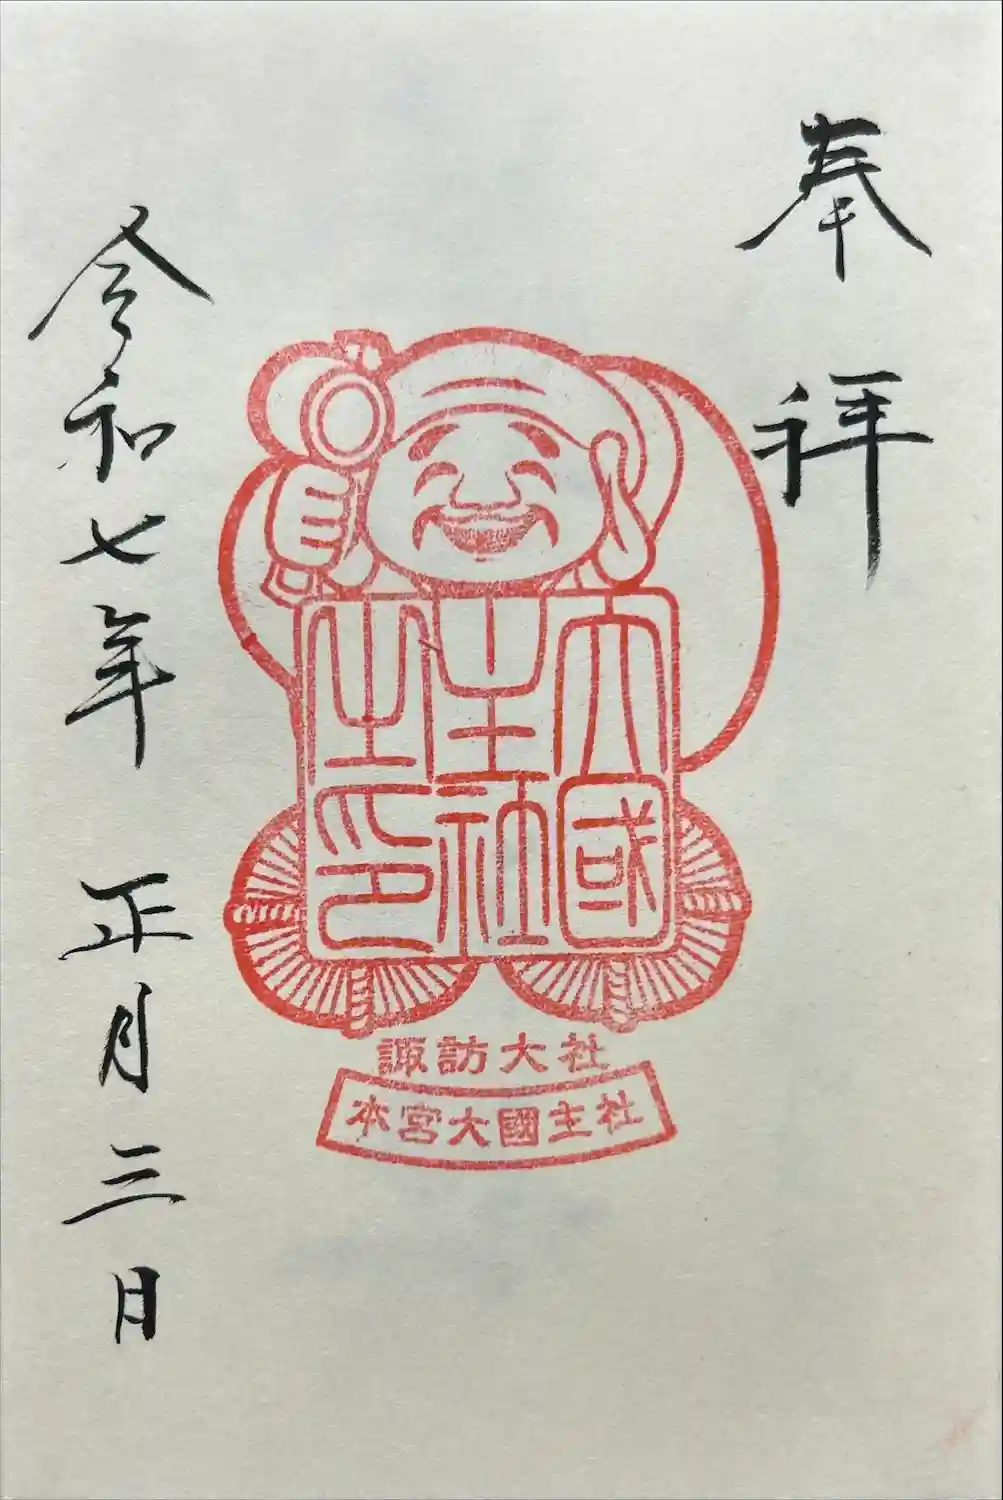 奉拜
大國
主社
之印
諏訪大社
本宮大國主社
令和七年 正月三日